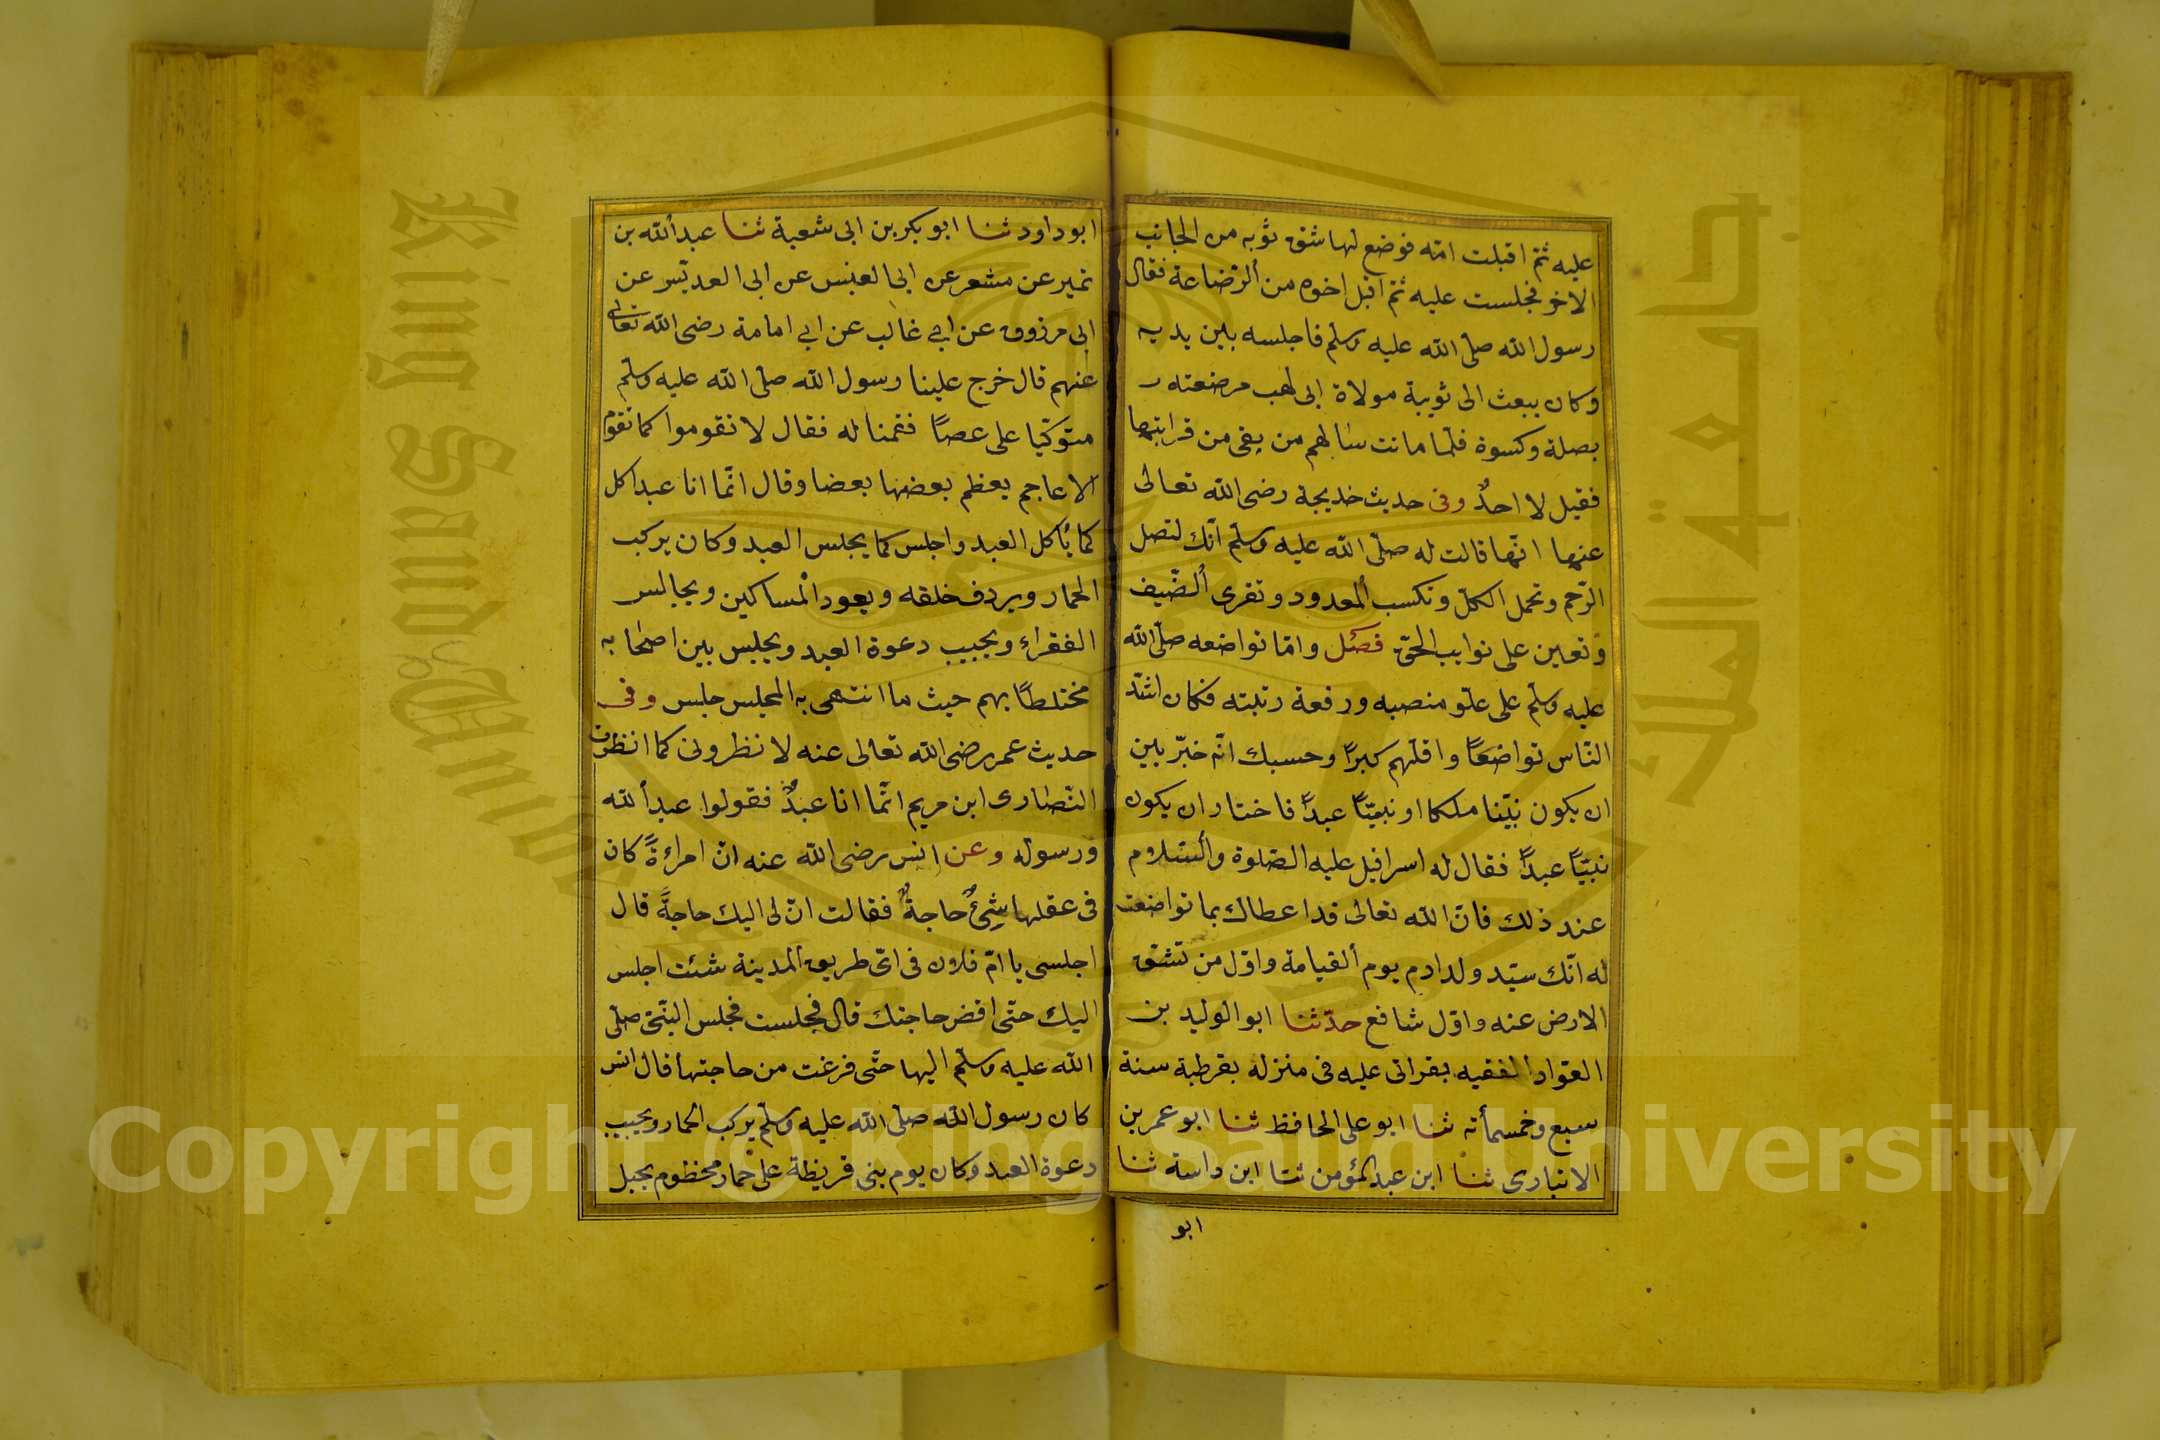 عليه ثمّ اقبلت امّه فوضع لها شق ثوبه من الجانب
الاخر فجلست عليه ثمّ اقبل اخوه من ألرّضاعة فقال
رسول الله صلّى الله عليه وسلّم فاجلسه بين يديه
وكان يبعث الى ثويبة مولاة ابى لهب مرضعته
بصلة وكسوة فلمّا ماتت سٔالهم من بقى من قرابتها
فقيل لا احدٌ وفى حديث خديجة رضى الله تعالى
عنها انّها قالت له صلّى الله عليه وسلّم انّك لتصل
الرّحم وتحمل الكلّ وتكسب ألمعدود وتقرى ألضّيف
وتعين على نوايب الحق فصْل وامّا تواضعه صلّى الله
عليه وسلّم على علوّ منصبه ورفعة رتبته فكان اشدّ
النّاس تواضعًا واقلّهم كبرًا وحسبك انّه خيّر بين
ان يكون نبيّنا ملكا او نبيّيًا عبدًا فاختار ان يكون
نبيّيًا عبدًا فقال له اسرافيل عليه الصّلوة وألسّلام
عند ذلك فانّ الله تعالى قد اعطاك بما تواضعت
له انّك سيّد ولد ادم يوم ألقيامة واوّل من تنشقّ
الارض عنه واوّل شافع حدّثنا ابو الوليد بن
العوّاد ألفقيه بقراتى عليه فى منزله بقرطبة سنة
سبع وخمسمأته ثنا ابو على الحافظ ثنا ابو عمر بن
الانبارى ثنا ابن عبد المؤمن ثنا ابن داسة ثنا
ابو
ابو داود ثنا ابو بكر بن ابى شعبة ثنا عبد ألله بن
نمير عن مشعر عن ابى العنبس عن ابى العدبّس عن
ابى مرزوق عن ابى غالب عن ابى امامة رضى الله تعالى
عنهم قال خرج علينا رسول الله صلّى الله عليه وسلّم
متوكّيا على عصًا فقمنا له فقال لا تقوموا كما تقوم
الاعاجم يعظم بعضها بعضا وقال انّما انا عبد اكل
كما ئاكل العبد واجلس كما يجلس العبد وكان يركب
الحمار ويردف خلقه ويعود المْساكين ويجالس
الفقراء ويجيب دعوة العبد ويجلس بين اصحابه
مختلطًا بهم حيث ما انتهى به المجلس جلس وفى
حديث عمر رضى الله تعالى عنه لا نظرونى كما انظرت
النّصارى ابن مريم انّما انا عبدٌ فقولوا عبد ألله
ورسوله وعن انس رضى الله عنه انّ امراءةً كان
فى عقلها شىءٌ حاجةٌ فقالت انّ لى اليك حاجةً قال
اجلسى يا امّ فلان فى اىّ طريق ألمدينة شئت اجلس
اليك حتّى اقض حاجتك قال فجلست فجلس النبّى صلّى
الله عليه وسلّم اليها حتّى فرغت من حاجتها قال انس
كان رسول الله صلّى الله عليه وسلّم يركب الحمار ويجيب
دعوة العبد وكان يوم بنى قريظة على حمار محظوم بحبل
Copyright © King Saud University
King Saud University
جامعة الملك